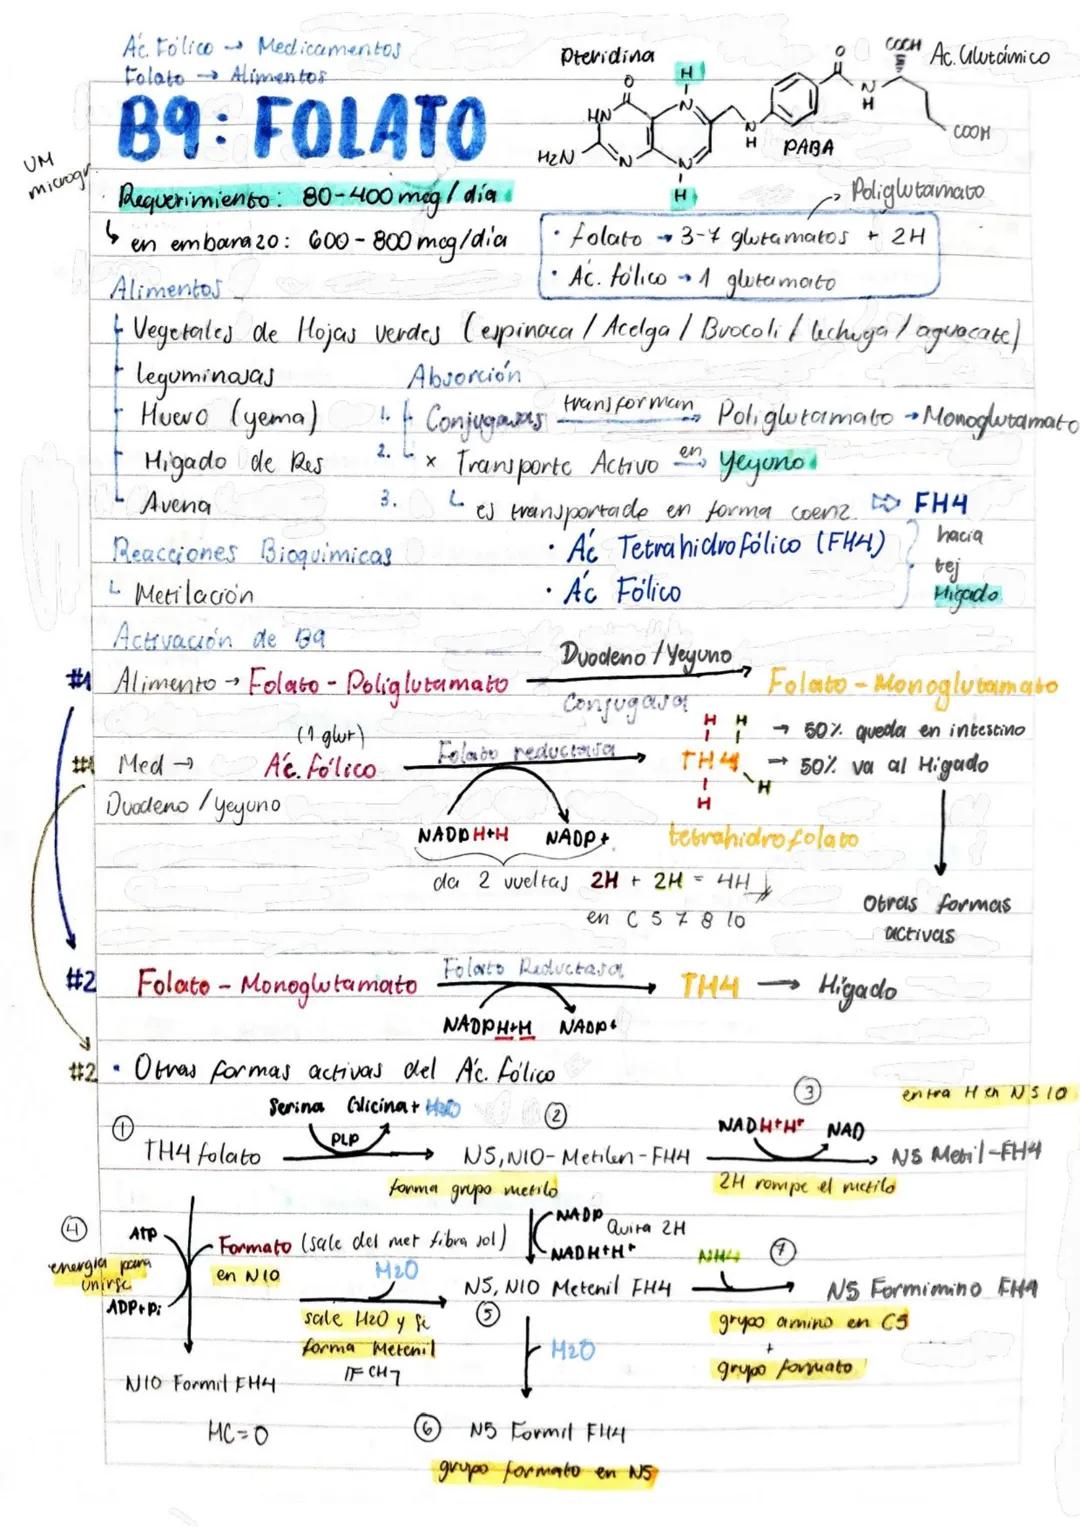 Ác. Fólico → Medicamentos
Folato → Alimentos
B9: FOLATO
UM
microgr
Pteridina
COOH
Ac. Glutámico
O
HN
H2N
N
N
H
N
H
N
H
PABA
O
N
H
COOH
Requerimiento: 80-400 mcg/día
↳ en embarazo: 600-800 mcg/día
→ Poliglutamato
· folato → 3-7 glutamatos + 2H
· Ác. fólico → 1 glutamato
Alimentos
Vegetales de Hojas verdes (espinaca / Acelga / Brocoli / lechuga / aguacate)
leguminosas
Huevo (yema)
Hígado de Res
Avena
Absorción
1. Conjugasas transforman → Poliglutamato → Monoglutamato
2. x Transporte Activo en → Yeyuno
3. es transportado en forma coenz. ⇨ FH4
· Ác Tetrahidrofólico (FH4)
· Ác Fólico
hacia
tej
Hígado
Reacciones Bioquímicas
Metilación
Activación de B9
#1 Alimento → Folato-Poliglutamato Duodeno / Yeyuno → Folato-Monoglutamato
Conjugasa
(1 glut)
#1 Med → Ác. Fólico Folato reductasa → TH4
H H
H
H
→ 50% queda en intestino
→ 50% va al Hígado
Duodeno / Yeyuno
NADPH+H NADP+
tetrahidrofolato
da 2 vueltas 2H + 2H = 4H
en C 5 7 8 10
Otras formas
activas
#2 Folato - Monoglutamato Folato Reductasa → TH4 → Hígado
NADPH+H NADP+
#2 · Otras formas activas del Ác. fólico
Serina Glicina + H2O
PLP
① TH4 folato → ② N5,N10-Metilen-FH4
forma grupo metilo
③ entra H en N5 10
NADH+H+ NAD
→ N5 Metil-FH4
2H rompe el metilo
④ ATP
energía para
unirse
ADP+Pi
Formato (sale del met fibra sol)
en N10
NADP
Quita 2H
NADH+H+
H2O
sale H2O y se
forma Metenil
CH
N5, N10 Metenil FH4
⑤
NH4
⑦
→ N5 Formimino FH4
grupo amino en C5
+
grupo formato
H2O
N10 Formil FH4
HC=O
⑥ N5 Formil FH4
grupo formato en N5